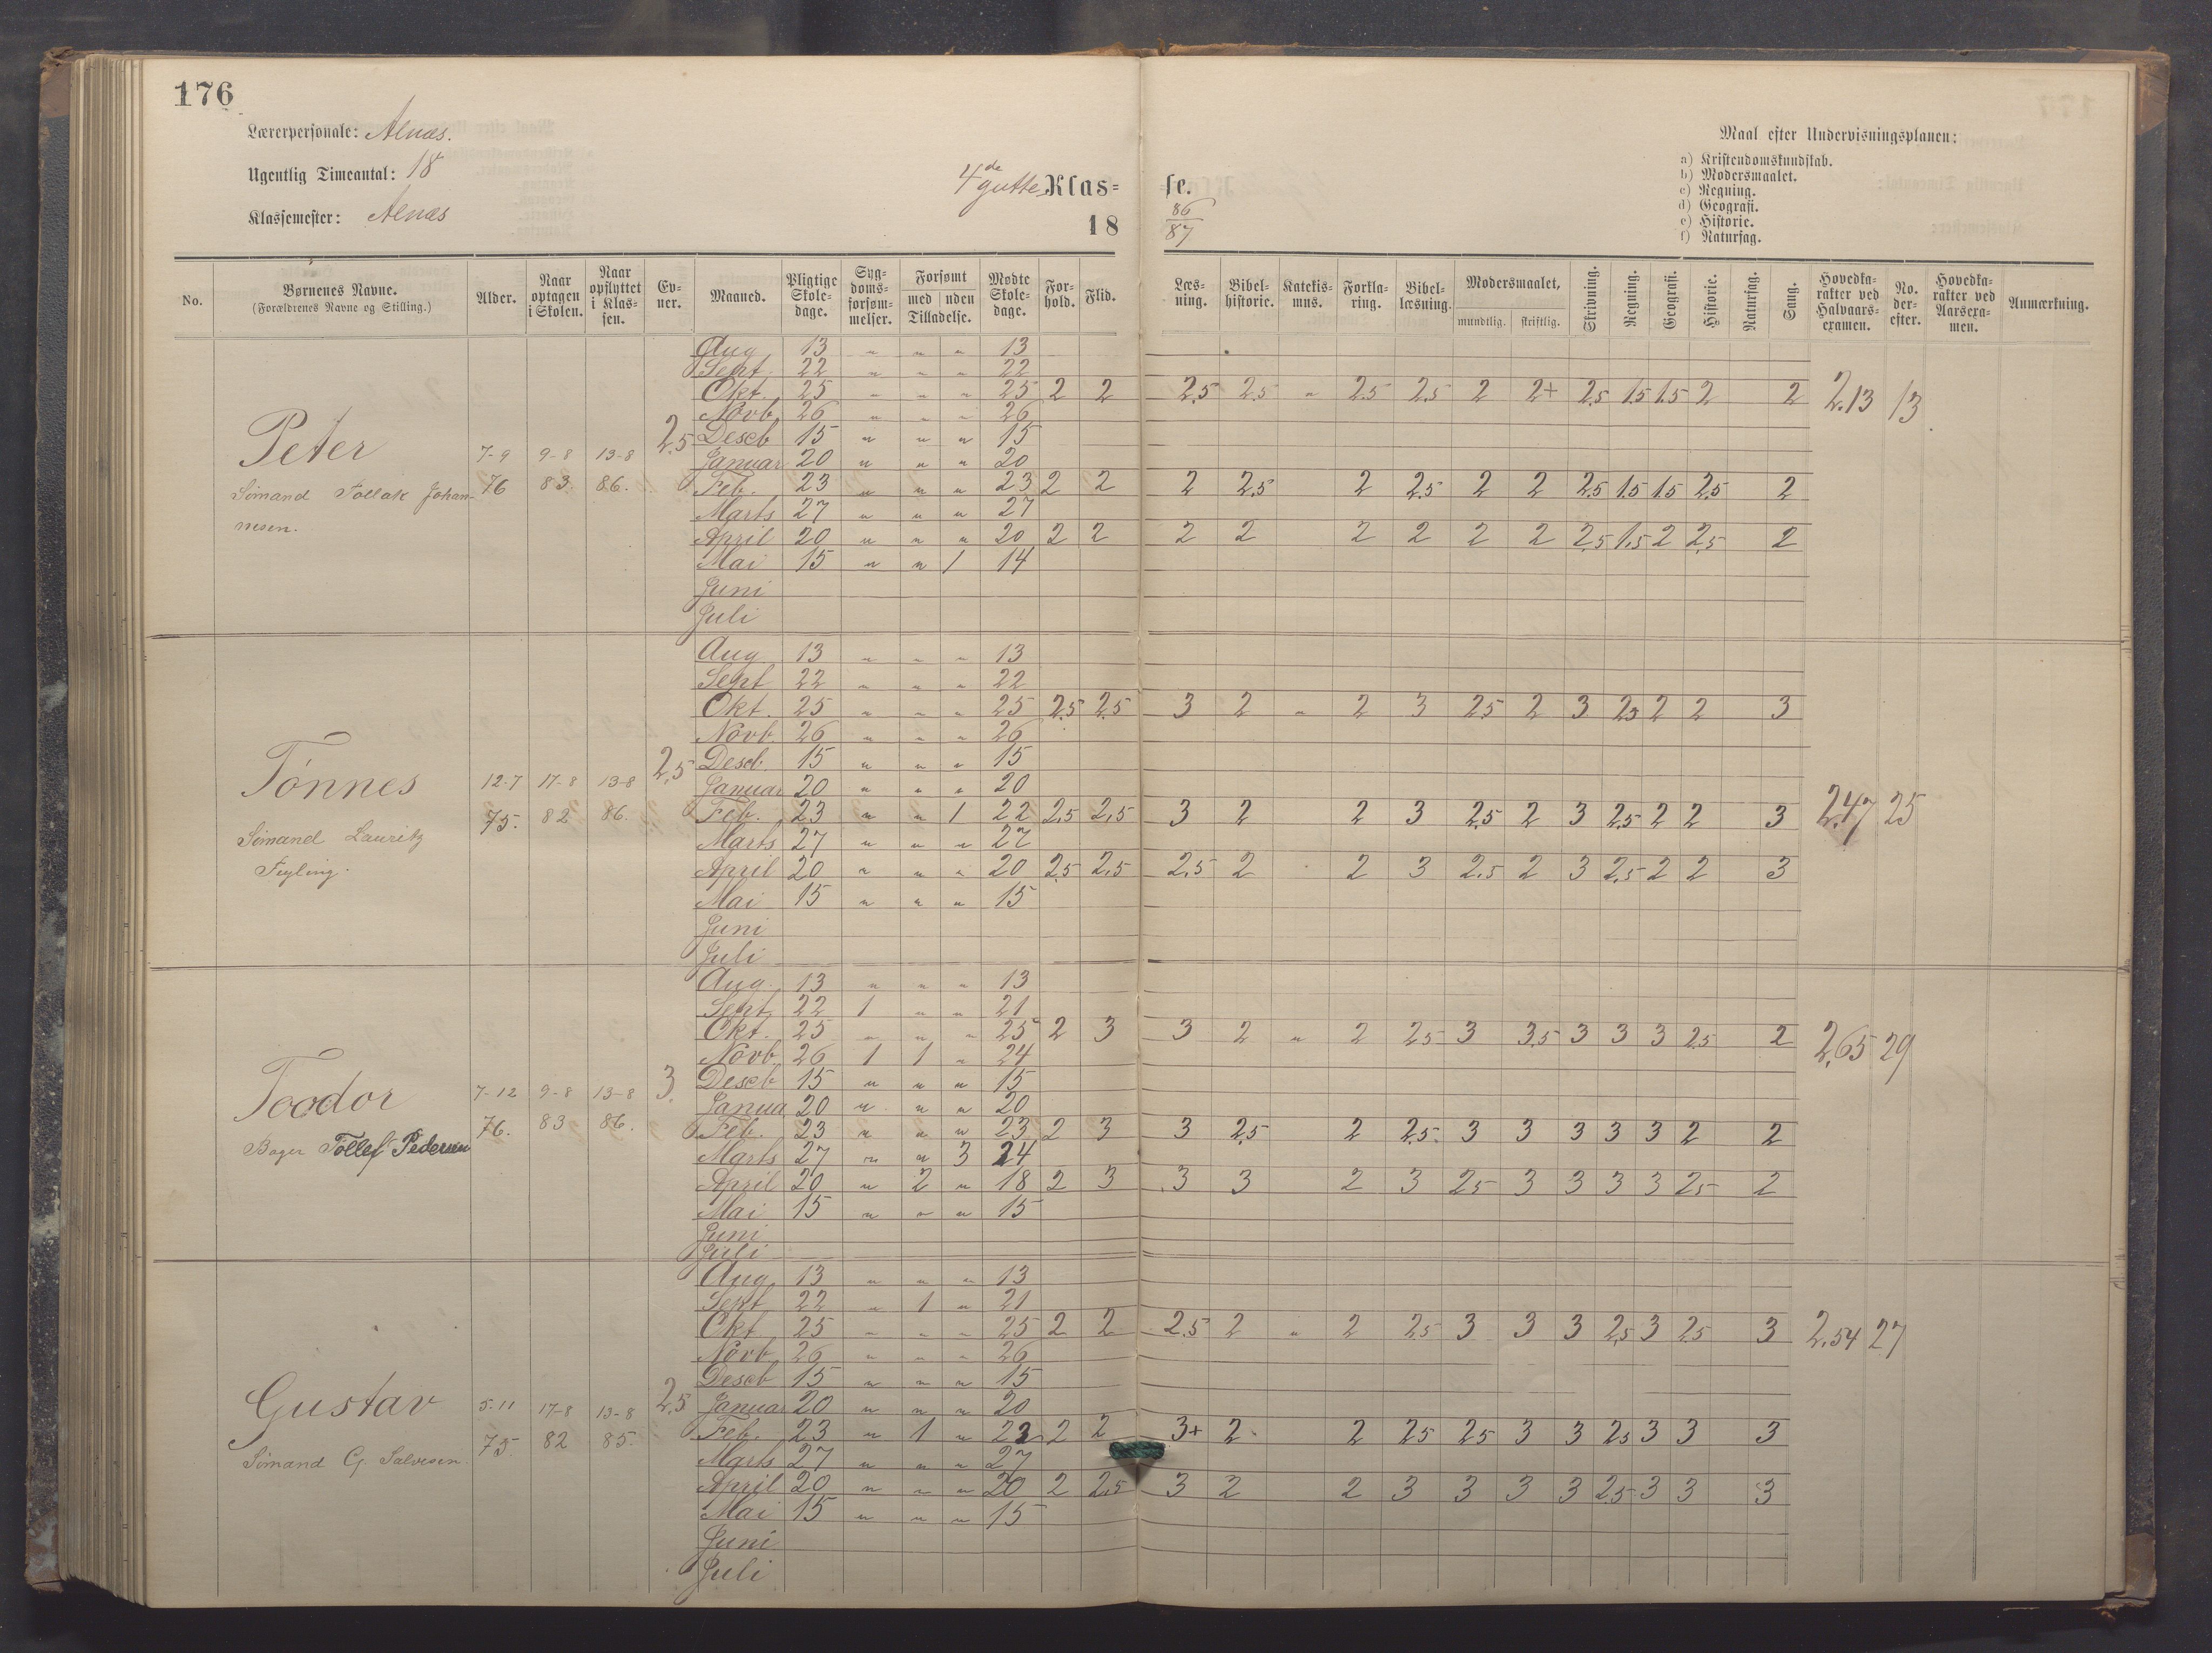 176
Lærerpersonale: Alnæs.
Ugentlig Timeantal: 18
Klassemester: Alnæs
4de gutte Klas=
se.
18
86
87
Maal efter Undervisningsplanen:
a) Kristendomskundskab.
b) Modersmaalet.
c) Regning.
d) Geografi.
e) Historie.
f) Naturfag.
No. | Børnenes Navne. (Forældrenes Navne og Stilling.) | Alder. | Naar optagen i Skolen. | Naar opflyttet i Klas-sen. | Ev-ner. | Maaned. | Pligtige Skole-dage. | Syg-doms-forsøm-melser. | Forsømt med uden Tilladelse. | Mødte Skole-dage. | For-hold. | Flid. | Læs-ning. | Bibel-historie. | Katekis-mus. | Forkla-ring. | Bibel-læsning. | Modersmaalet, mundtlig. skriftlig. | Skrivning. | Regning. | Geografi. | Historie. | Naturfag. | Sang. | Hovedka-rakter ved Halvaars-examen. | No. der-efter. | Hovedka-rakter ved Aarsexa-men. | Anmærkning.
Aug 13 " " " 13
Sept 22 " " " 22
Okt. 25 " " " 25 2 2 2,5 2,5 " 2,5 2,5 2 2+ 2,5 1,5 1,5 2 2 2,13 13
Novb. 26 " " " 26
Peter 7-9 9-8 13-8 2,5 Deseb 15 " " " 15
Januar 20 " " " 20
Sømand Tollak Johan- 76 83. 86. Feb. 23 " " " 23 2 2 2 2,5 2 2,5 2 2 2,5 1,5 1,5 2,5 2
nesen. Marts 27 " " " 27
April 20 " " " 20 2 2 2 2 2 2 2 2 2,5 1,5 2 2,5 2
Mai 15 " " 1 14
Juni
Juli
Aug 13 " " " 13
Sept 22 " " " 22
Okt. 25 " " " 25 2,5 2,5 3 2 " 2 3 2,5 2 3 2,5 2 2 3
Novb. 26 " " " 26
Tønnes 12-7 17-8 13-8 2,5 Deseb. 15 " " " 15
Januar 20 " " " 20
75. 82 86. Feb. 23 " " 1 22 2,5 2,5 3 2 2 3 2,5 2 3 2,5 2 2 3 2,47 25
Sømand Lauritz Marts 27 " " " 27
April 20 " " " 20 2,5 2,5 2,5 2 2 3 2,5 2 3 2,5 2 2 3
Mai 15 " " " 15
Juni
Juli
Aug. 13 " " " 13
Sept. 22 1 " " 21
Okt. 25 " " " 25 2 3 3 2 " 2 2,5 3 3,5 3 3 3 2,5 2 2,65 29
Novb. 26 1 1 " 24
Toodor 7-12 9-8 13-8 3. Deseb 15 " " " 15
Janua 20 " " " 20
76. 83 86. Feb. 23 " " " 23 2 3 3 2,5 2 2,5 3 3 3 3 3 2 2
Bager Tollef Pedersen Marts 27 " " 3 24
April 20 " 2 " 18 2 3 3 3 2 3 2,5 3 3 3 3 2,5 2
Mai 15 " " " 15
Juni
Juli
Aug. 13 " " " 13
Sept 22 " 1 " 21
Okt 25 " " " 25 2 2 2,5 2 " 2 2,5 3 3 3 2,5 3 2,5 3 2,54 27
Novb. 26 " " " 26
Deseb 15 " " " 15
Gustav 5-11 17-8 13-8 2,5 Januar 20 " " " 20
75. 82 85. Feb. 23 " 1 " 22 2 2 3+ 2 2 2,5 2,5 3 3 2,5 3 3 3
Sømand G. Salvesen. Marts 27 " " " 27
April 20 " " " 20 2 2,5 3 2 2 3 3 3 3 2,5 3 3 3
Mai 15 " " " 15
Juni
Juli